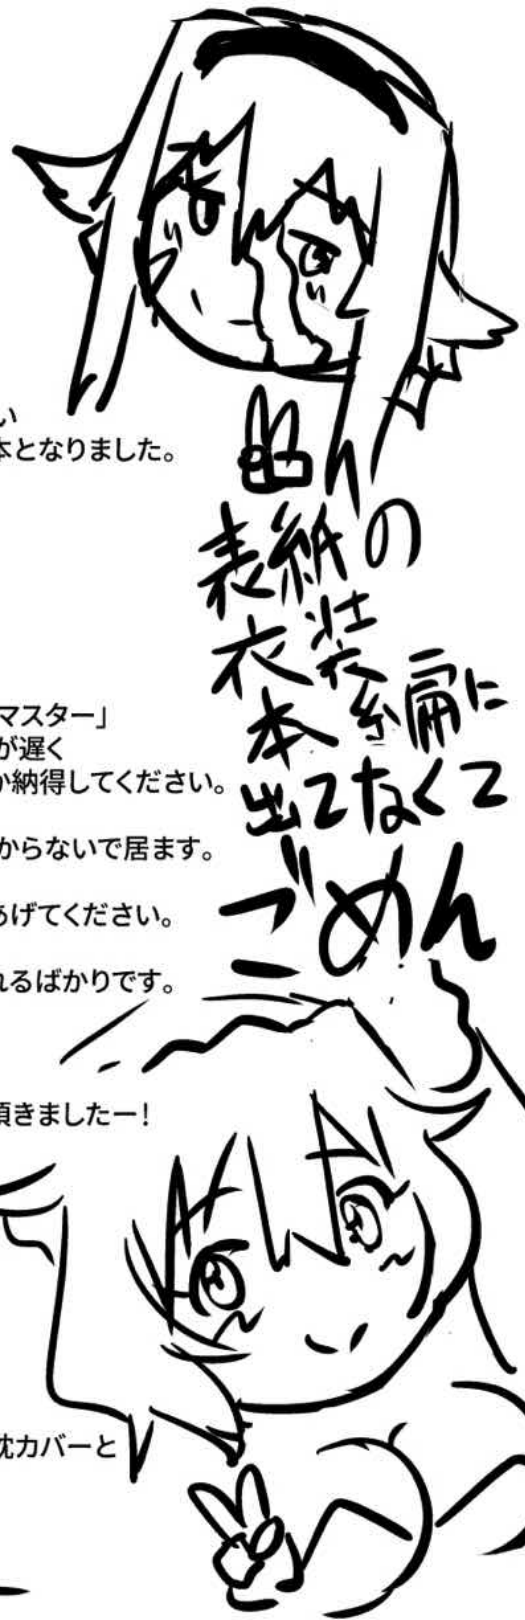 い
本となりました。
表紙の
衣装
本編に
出てなくて
ごめん
マスター」
が遅く
か納得してください。
からないで居ます。
あげてください。
れるばかりです。
頂きましたー!
枕カバーと